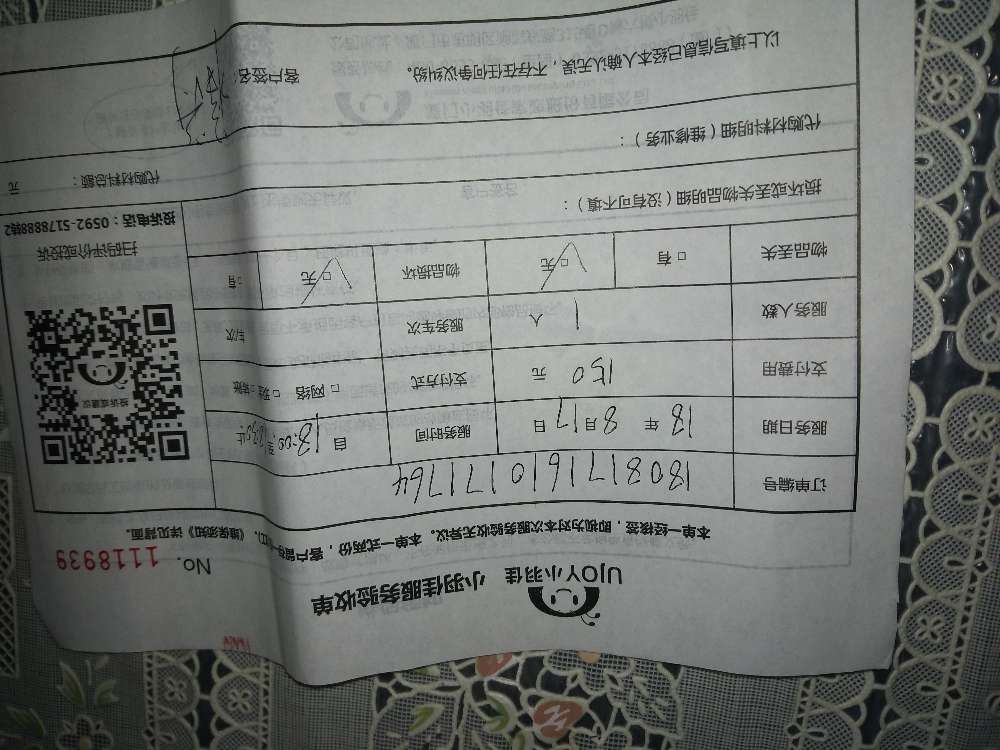 UJOY小羽佳 小羽佳服务验收单
No. 1118939
本单一经核签,即视为对本次服务验收无异议。本单一式两份,客户留存 《维保须知》详见背面。
订单编号 1808171610171764
服务日期 18 年 8 月 17 日 服务时间 自 18:00 至 18:30 止
支付费用 150 元 支付方式 □ 网络 □
服务人数 1 人 服务车次 车次
物品丢失 □ 有 □ 无 物品损坏 □ 无 □ 有
投诉或建议
扫码评价或投诉
投诉电话:0592-5178888转2
损坏或丢失物品明细(没有可不填):
代购材料明细(维修业务): 代购材料总额: 元
以上填写信息已经本人确认无误,不存在任何争议纠纷。 客户签名: